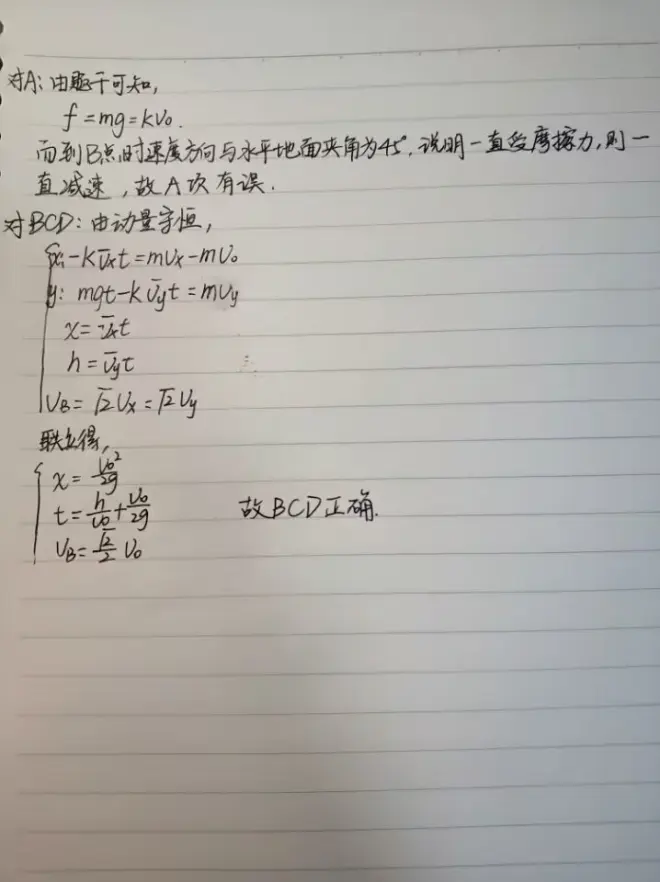 对A:由题干可知,
f=mg=kv₀.
而到B点时速度方向与水平地面夹角为45°,说明一直受摩擦力,则一
直减速,故A项有误.
对BCD:由动量守恒,
x:-kv̄ₓt=mvₓ-mv₀
y: mgt-kv̄yt=mvy
x=v̄ₓt
h=v̄yt
vB=√2vₓ=√2vy
联立得,
x=v₀²/2g
t=h/v₀+v₀/2g 故BCD正确.
vB=√2/2 v₀